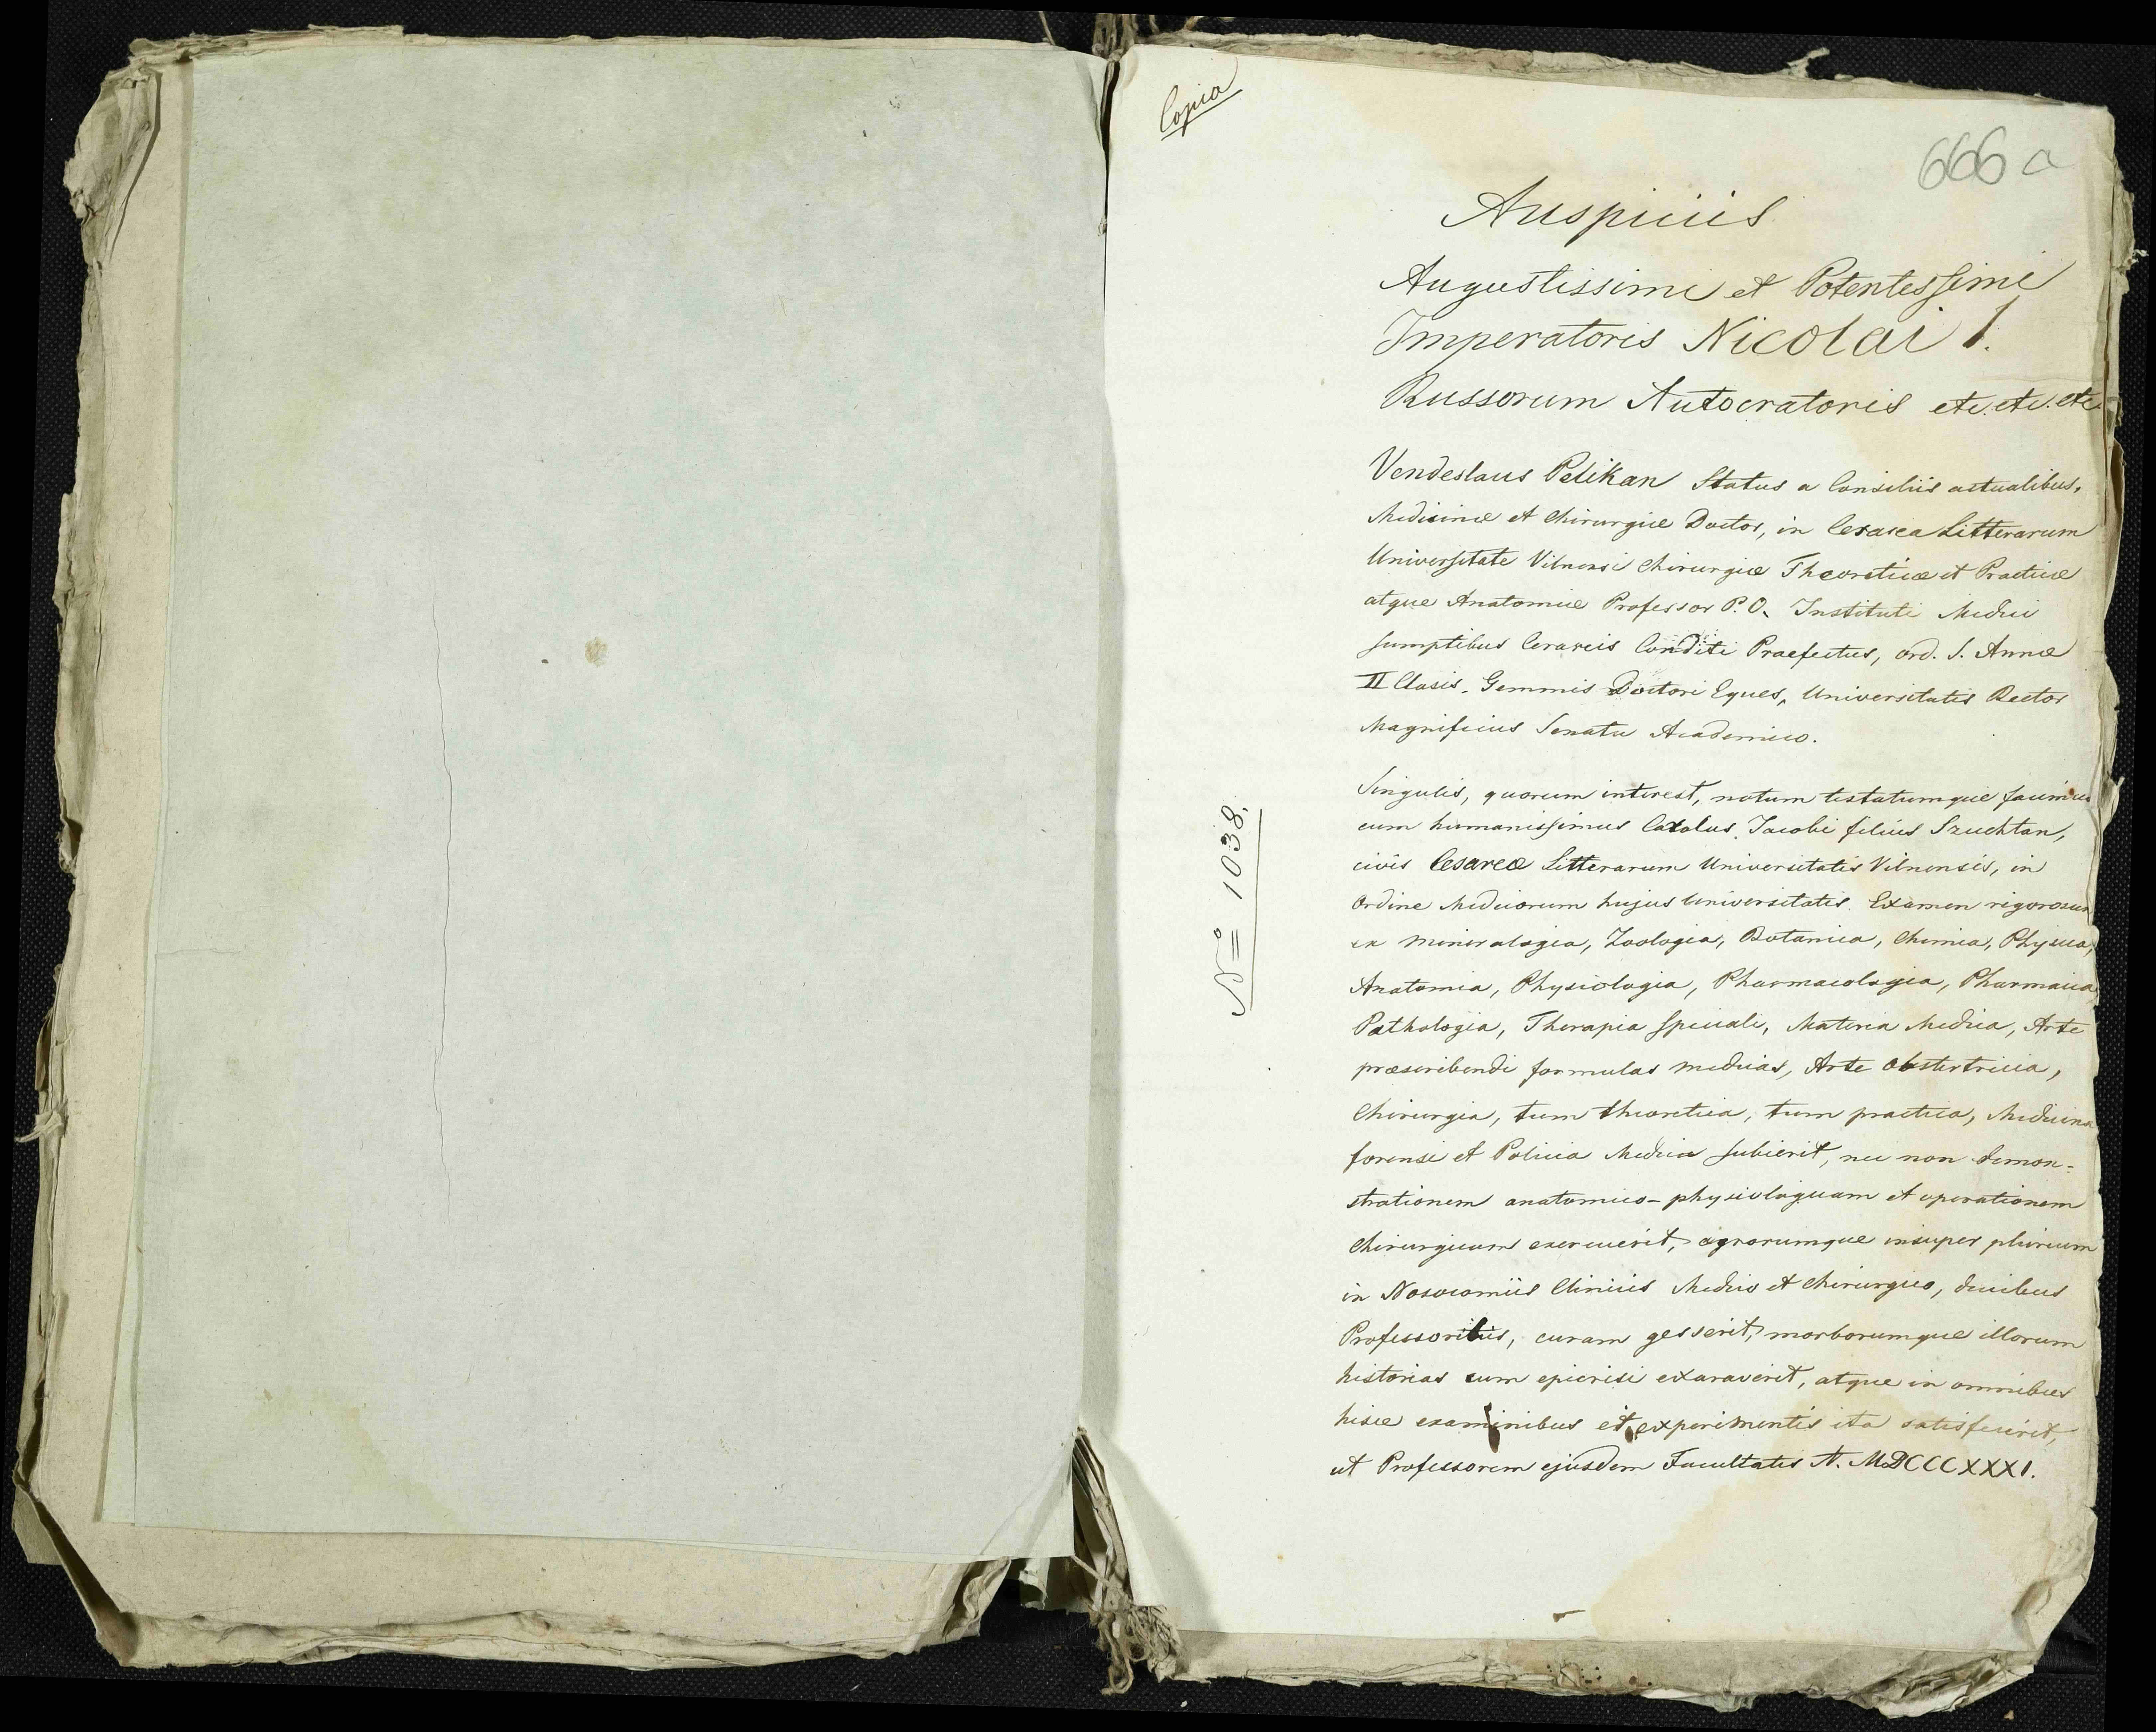 Copia
666 a
Auspiciis
Augustissimi et Potentessimi
Imperatoris Nicolai I.
Russorum Autocratoris etc. etc. etc.
Vendeslaus Pelikan Status a Consiliis actualibus,
Medicinæ et Chirurgiæ Doctor, in Cesarea Litterarum
Universitate Vilnensi Chirurgiæ Theoreticæ et Practicæ
atque Anatomiæ Professor P. O. Instituti Medici
sumptibus Cerareis Conditi Praefectus, ord. S. Annæ
II Clasis. Gemmis Doctori Eques, Universitatis Rector
Magnificus Senatu Academico.
Singulis, quorum interest, notum testatumque facimus
cum humanissimus Carolus. Jacobi filius Szuchtan,
civis Cesareæ Litterarum Universitatis Vilnensis, in
Ordine Medicorum hujus Universitatis Examen rigorosum
ex Mineralogia, Zoologia, Botanica, Chimia, Physica,
Anatomia, Physiologia, Pharmacologia, Pharmacia
Pathologia, Therapia speciali, Materia Medica, Arte
præscribendi formulas medicas, Arte obstertricia,
Chirurgia, tum theoretica, tum practica, Medicina
forensi et Policia Medica subierit, nec non demon=
strationem anatomico-physiologicam et operationem
Chirurgicam exercuerit, ægrorumque insuper plurium
in Nosocomiis Clinicis Medico et Chirurgico, ducibus
Professoribus, curam gesserit, morborumque illorum
historias cum epicrisi exaraverit, atque in omnibus
hisce examinibus et experimentis ita satisfecirit,
ut Professorem ejusdem Facultatis A. MDCCCXXXI.
N° 1038.